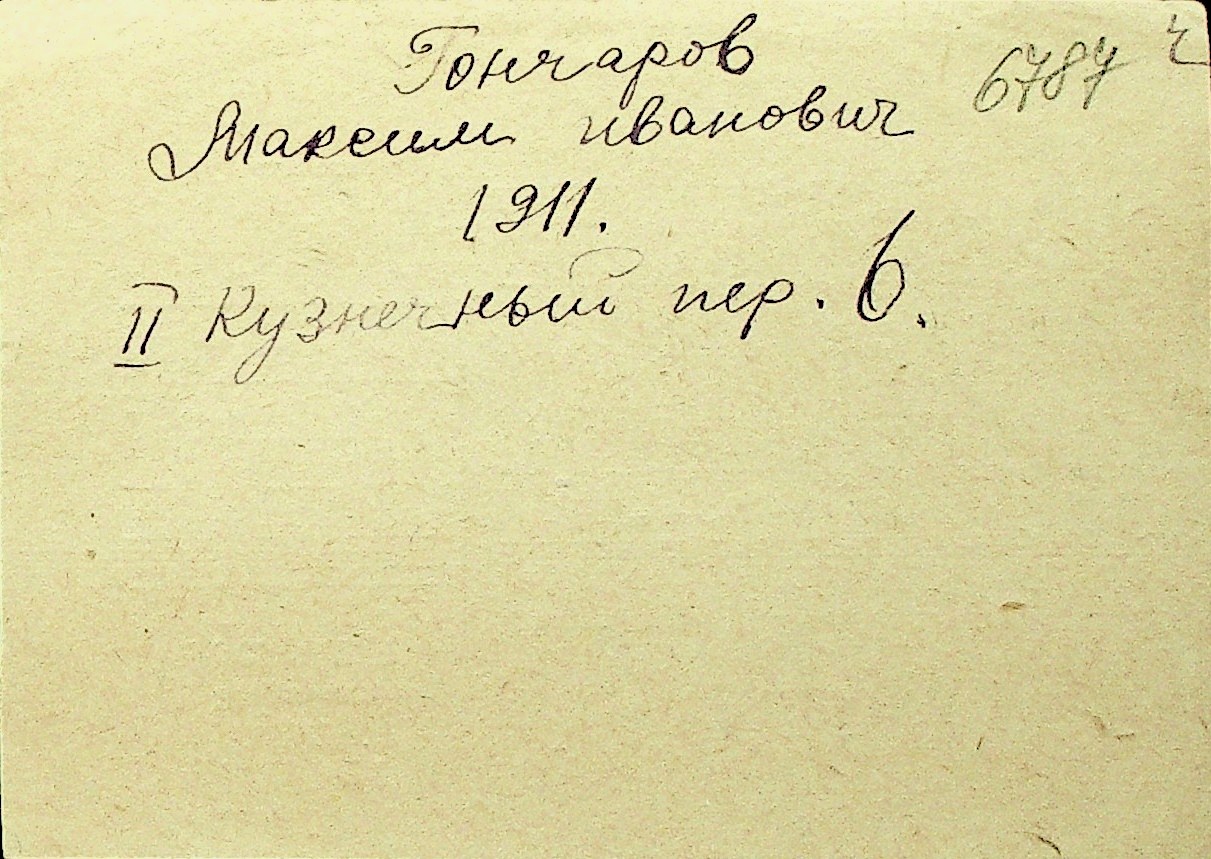 Гончаров 6787 ч
Максим иванович
1911.
II Кузнечный пер. 6.